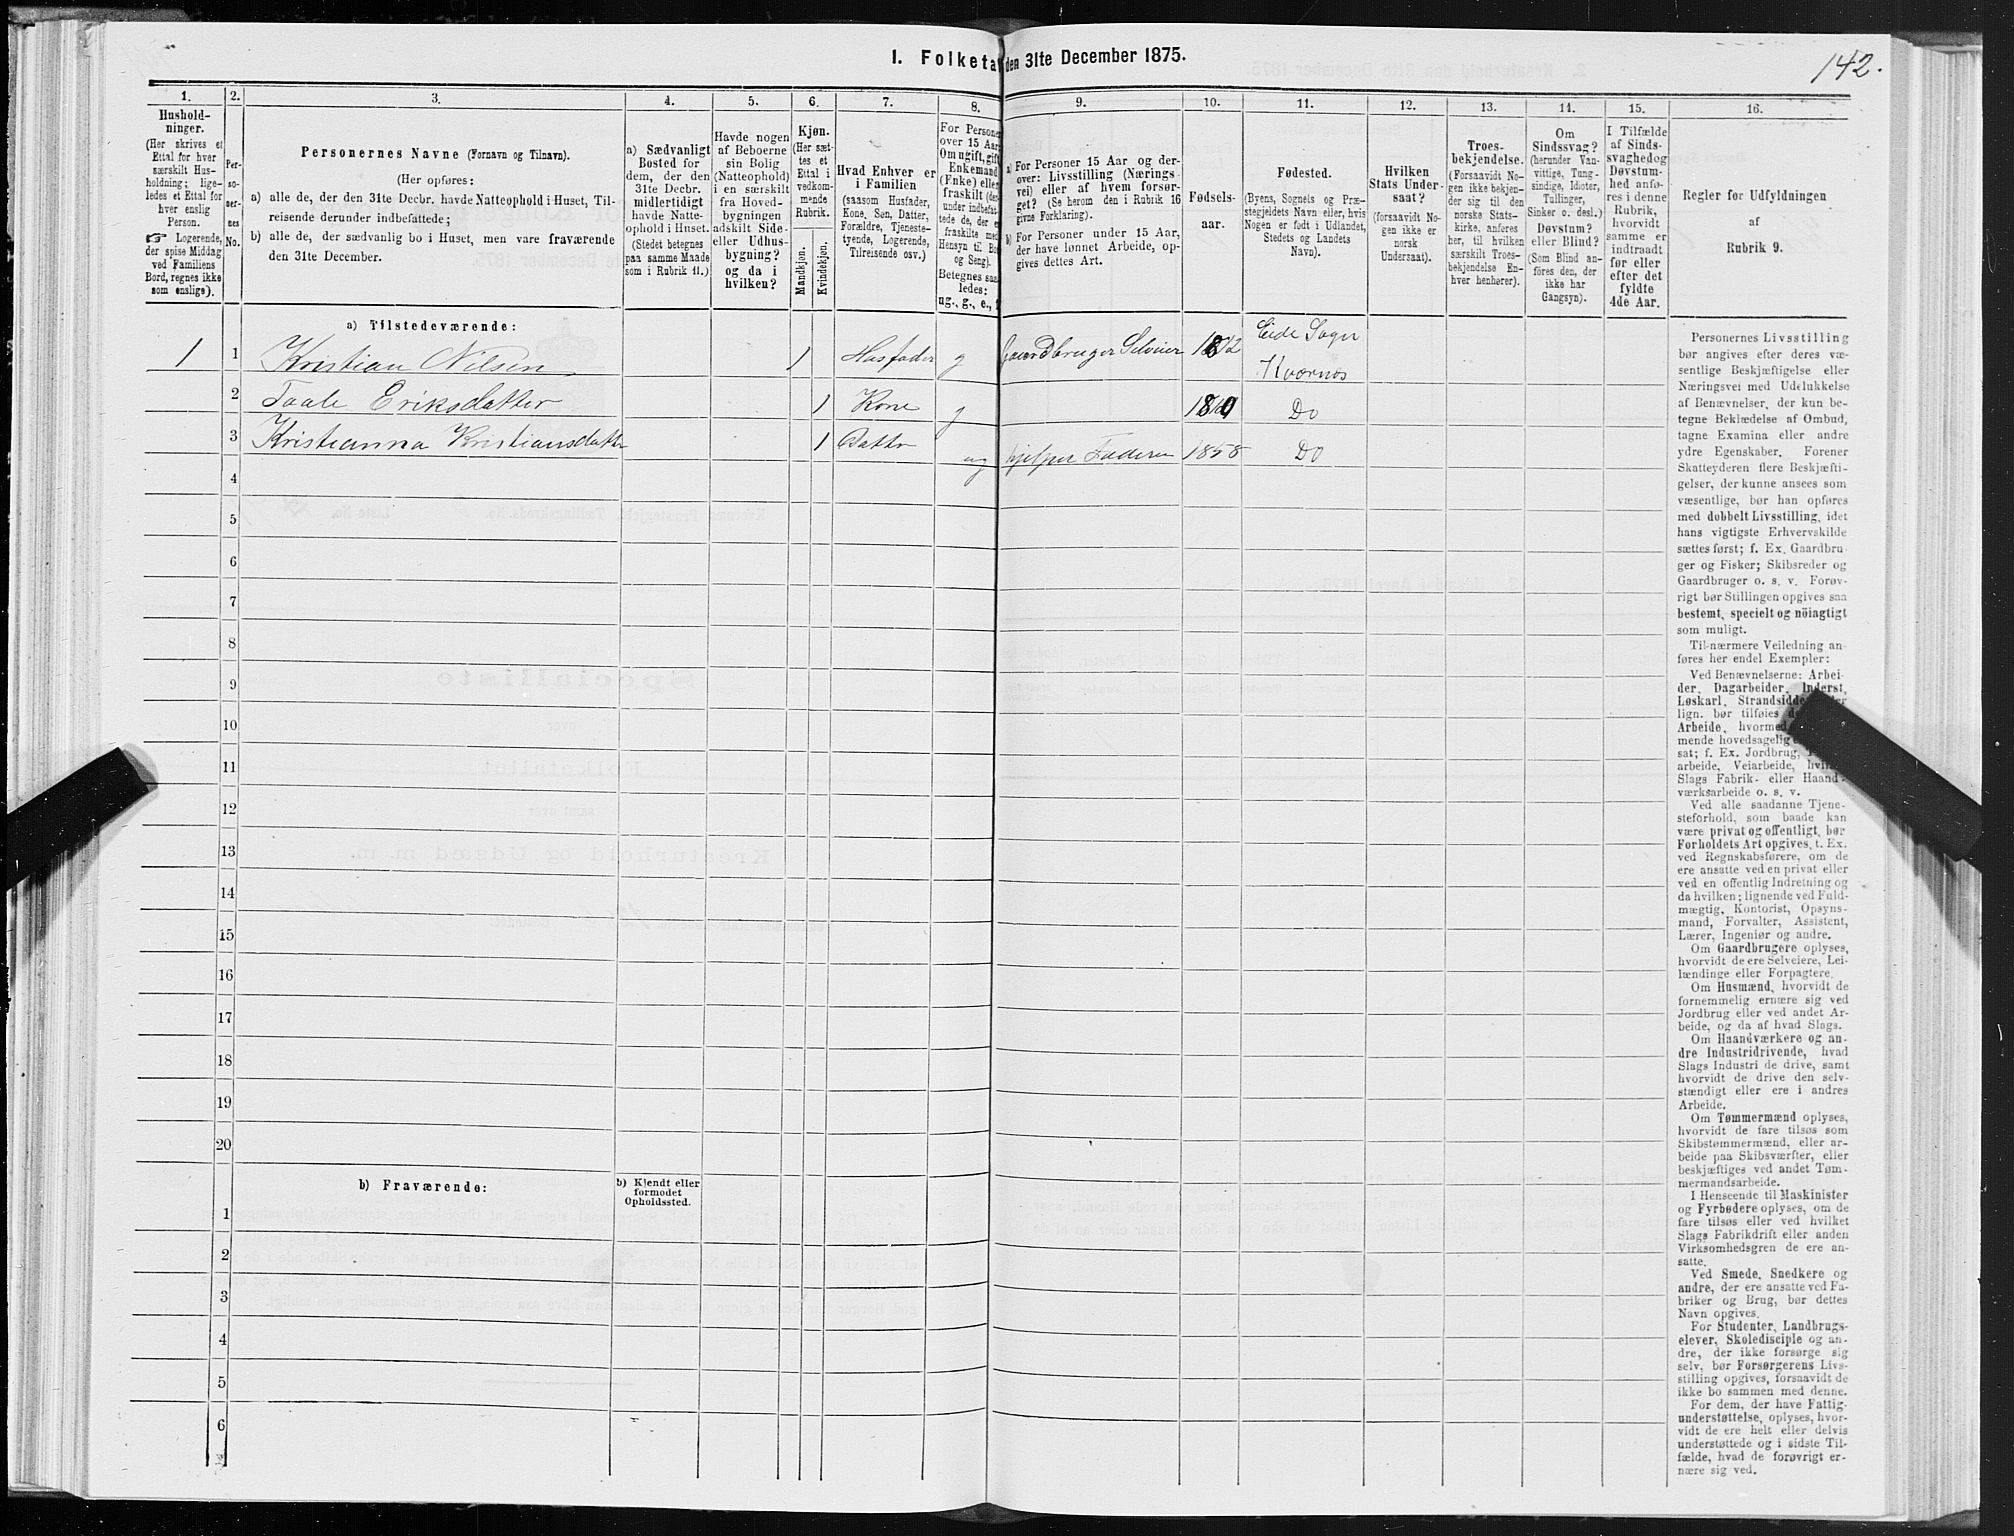 142.
I. Folketa den 31te December 1875.
1.
Hushold-
ninger.
(Her skrives et
Ettal for hver
særskilt Hus-
holdning; lige-
ledes et Ettal for
hver enslig
Person.
☞ Logerende,
der spise Middag
ved Familiens
Bord, regnes ikke
som enslige).
2.
Per-
so-
ner-
nes
No.
3.
Personernes Navne (Fornavn og Tilnavn).
(Her opføres:
a) alle de, der den 31te Decbr. havde Natteophold i Huset, Til-
reisende derunder indbefattede;
b) alle de, der sædvanlig bo i Huset, men vare fraværende
den 31te December.
4.
a) Sædvanligt
Bosted for
dem, der den
31te Decbr.
midlertidigt
havde Natte-
ophold i Huset.
(Stedet betegnes
paa samme Maade
som i Rubrik 11.)
5.
Havde nogen
af Beboerne
sin Bolig
(Natteophold)
i en særskilt
fra Hoved-
bygningen
adskilt Side-
eller Udhus-
bygning?
og da i
hvilken?
6.
Kjøn.
(Her sæt-
tes et
Ettal i
vedkom-
mende
Rubrik.
Mandkjøn.
Kvindekjøn.
7.
Hvad Enhver er
i Familien
(saasom Husfader,
Kone, Søn, Datter,
Forældre, Tjeneste-
tyende, Logerende,
Tilreisende osv.)
8.
For Persone
over 15 Aar
Om ugift, gift
Enkemand
(Enke) elle
fraskilt (der
under indbefat-
tede de, der e
fraskilte med
Hensyn til Bo
og Seng).
Betegnes saa
ledes:
ug., g., e.,
9.
a) For Personer 15 Aar og der-
over: Livsstilling (Nærings-
vei) eller af hvem forsør-
get? (Se herom den i Rubrik 16
givne Forklaring).
b) For Personer under 15 Aar,
der have lønnet Arbeide, op-
gives dettes Art.
10.
Fødsels-
aar.
11.
Fødested.
(Byens, Sognets og Præ-
stegjeldets Navn eller, hvis
Nogen er født i Udlandet,
Stedets og Landets
Navn).
12.
Hvilken
Stats Under-
saat?
(forsaavidt No-
gen ikke er
norsk
Undersaat).
13.
Troes-
bekjendelse.
(Forsaavidt No-
gen ikke bekjen-
der sig til den
norske Stats-
kirke, anføres
her, til hvilken
særskilt Troes-
bekjendelse En-
hver henhører).
14.
Om
Sindssvag?
(herunder Van-
vittige, Tung-
sindige, Idioter,
Tullinger,
Sinker o. desl.)
Døvstum?
eller Blind?
(Som Blind an-
føres den, der
ikke har
Gangsyn).
15.
I Tilfælde
af Sinds-
svaghed og
Døvstum-
hed anfø-
res i denne
Rubrik,
hvorvidt
samme er
indtraadt
før eller
efter det
fyldte
4de Aar.
16.
Regler for Udfyldningen
af
Rubrik 9.
a) Tilstedeværende:
1 1 Kristian Nilsen 1 Husfader g Gaardbruger Selveier 1812 Eide Sogn
Kværnæs
2 Eriksdatter 1 Kone g Do
3 Kristianna Kristiansdatter 1 Datter ug hjelper Faderen 1858 Do
4
5
6
7
8
9
10
11
12
13
14
15
16
17
18
19
20
b) Fraværende:
b) Kjendt eller
formodet
Opholdssted.
1
2
3
4
5
6
Personernes Livsstilling
bør angives efter deres væ-
sentlige Beskjæftigelse eller
Næringsvei med Udelukkelse
af Benævnelser, der kun be-
tegne Beklædelse af Ombud,
tagne Examina eller andre
ydre Egenskaber. Forener
Skatteyderen flere Beskjæfti-
gelser, der kunne ansees som
væsentlige, bør han opføres
med dobbelt Livsstilling, idet
hans vigtigste Erhvervskilde
sættes først; f. Ex. Gaardbru-
ger og Fisker; Skibsreder og
Gaardbruger o. s. v. Forøv-
rigt bør Stillingen opgives saa
bestemt, specielt og nöiagtigt
som muligt.
Til nærmere Veiledning an-
føres her endel Exempler:
Ved Benævnelserne: Arbei-
der, Dagarbeider, Inderst,
Løskarl, Strandsidde
lign. bør tilføies
Arbeide, hvorme
mende hovedsagelig
sat; f. Ex. Jordbrug,
arbeide, Veiarbeide,
Slags Fabrik- eller Haand-
værksarbeide o. s. v.
Ved alle saadanne Tjene-
steforhold, som baade kan
være privat og offentligt, bør
Forholdets Art opgives, t. Ex.
ved Regnskabsførere, om de
ere ansatte ved en privat eller
ved en offentlig Indretning og
da hvilken; lignende ved Fuld-
mægtig, Kontorist, Opsyns-
mand, Forvalter, Assistent,
Lærer, Ingeniør og andre.
Om Gaardbrugere oplyses,
hvorvidt de ere Selveiere, Lei-
lændinge eller Forpagtere.
Om Husmænd, hvorvidt de
fornemmelig ernære sig ved
Jordbrug eller ved andet Ar-
beide, og da af hvad Slags.
Om Haandværkere og an-
dre Industridrivende, hvad
Slags Industri de drive, samt
hvorvidt de drive den selv-
stændigt eller ere i andres
Arbeide.
Om Tømmermænd oplyses,
hvorvidt de fare tilsøs som
Skibstømmermænd, eller ar-
beide paa Skibsværfter, eller
beskjæftiges ved andet Tøm-
mermandsarbeide.
I Henseende til Maskinister
og Fyrbødere oplyses, om de
fare tilsøs eller ved hvilket
Slags Fabrikdrift eller anden
Virksomhedsgren de ere an-
satte.
Ved Smede, Snedkere og
andre, der ere ansatte ved Fa-
briker og Brug, bør dettes
Navn opgives.
For Studenter, Landbrugs-
elever, Skoledisciple og an-
dre, der ikke forsørge sig
selv, bør Forsørgerens Livs-
stilling opgives, forsaavidt de
ikke bo sammen med denne.
For dem, der have Fattig-
understøttelse, oplyses, hvor-
vidt de ere helt eller delvis
understøttede og i sidste Til-
fælde, hvad de forøvrigt er-
nære sig ved.